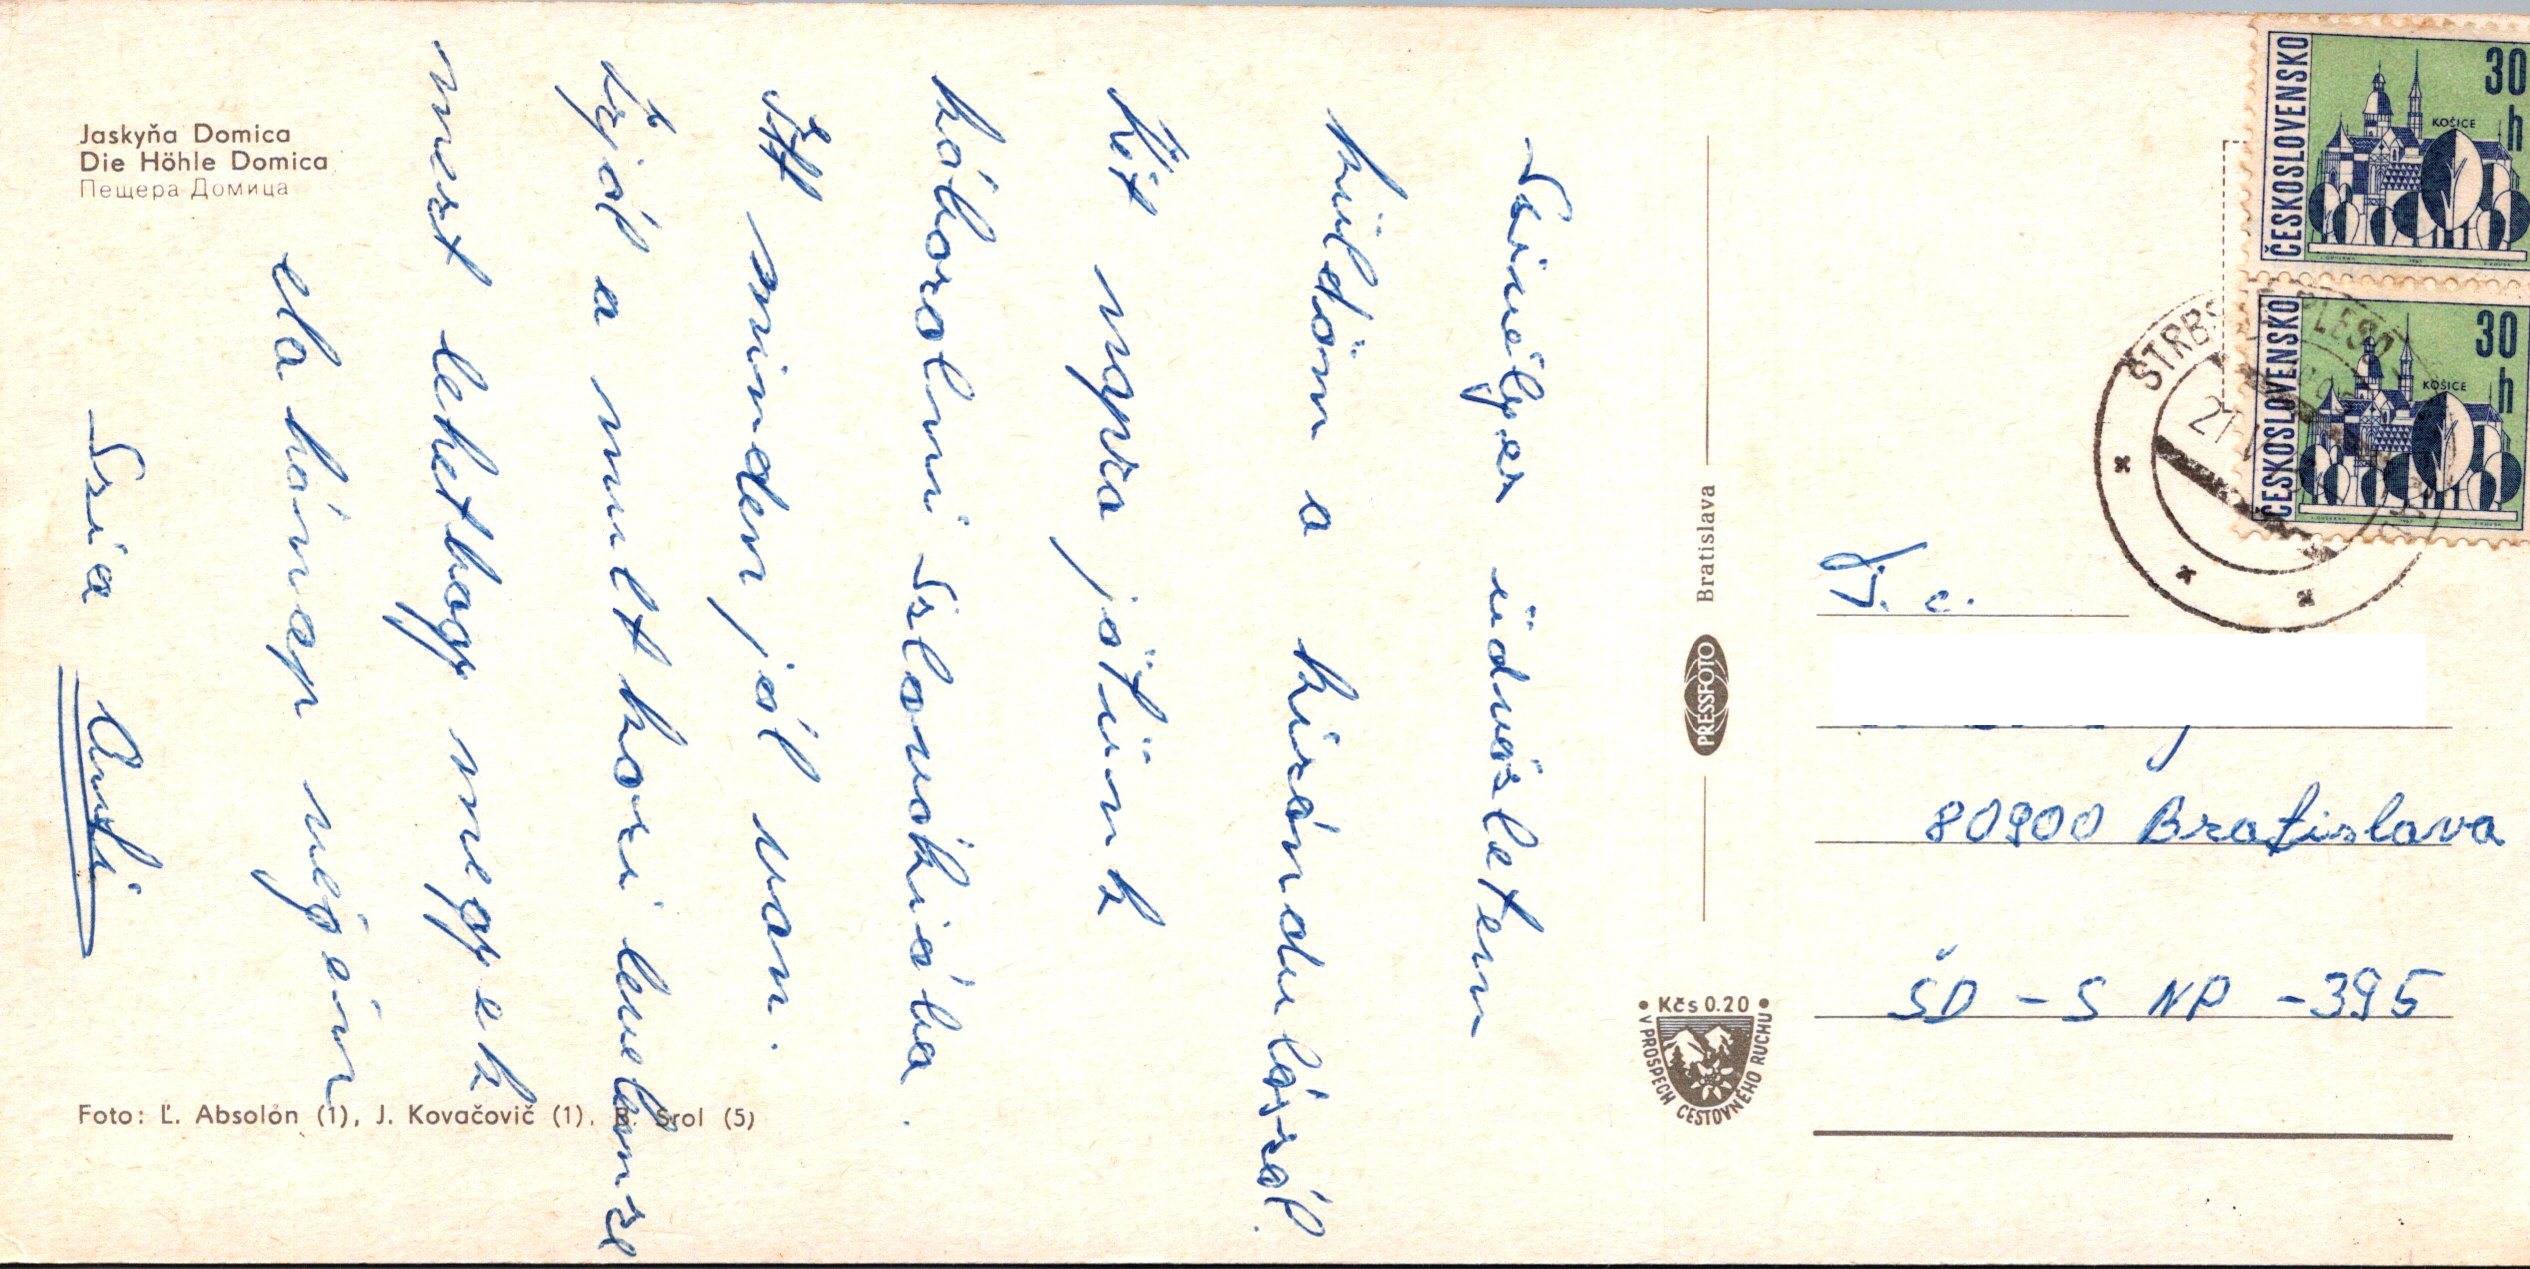 Jaskyňa Domica
Die Höhle Domica
Пещера Домица
Szivélyes üdvözletem
küldöm a kirándulásról.
Két napra jötünk
káborolni Szlovákiába.
Itt minden jól van.
Irjál a mult kori levelemre
mert lehethogy megyek
ela hónap végén
Szia Anti
Foto: Ľ. Absolón (1), J. Kovačovič (1), Srol (5)
Bratislava
PRESSFOTO
• Kčs 0.20 •
V PROSPECH CESTOVNÉHO RUCHU
ČESKOSLOVENSKO
30
h
KOŠICE
ČESKOSLOVENSKO
30
h
KOŠICE
ŠTRBSKÉ PLESO
80900 Bratislava
ŠD - S NP - 395